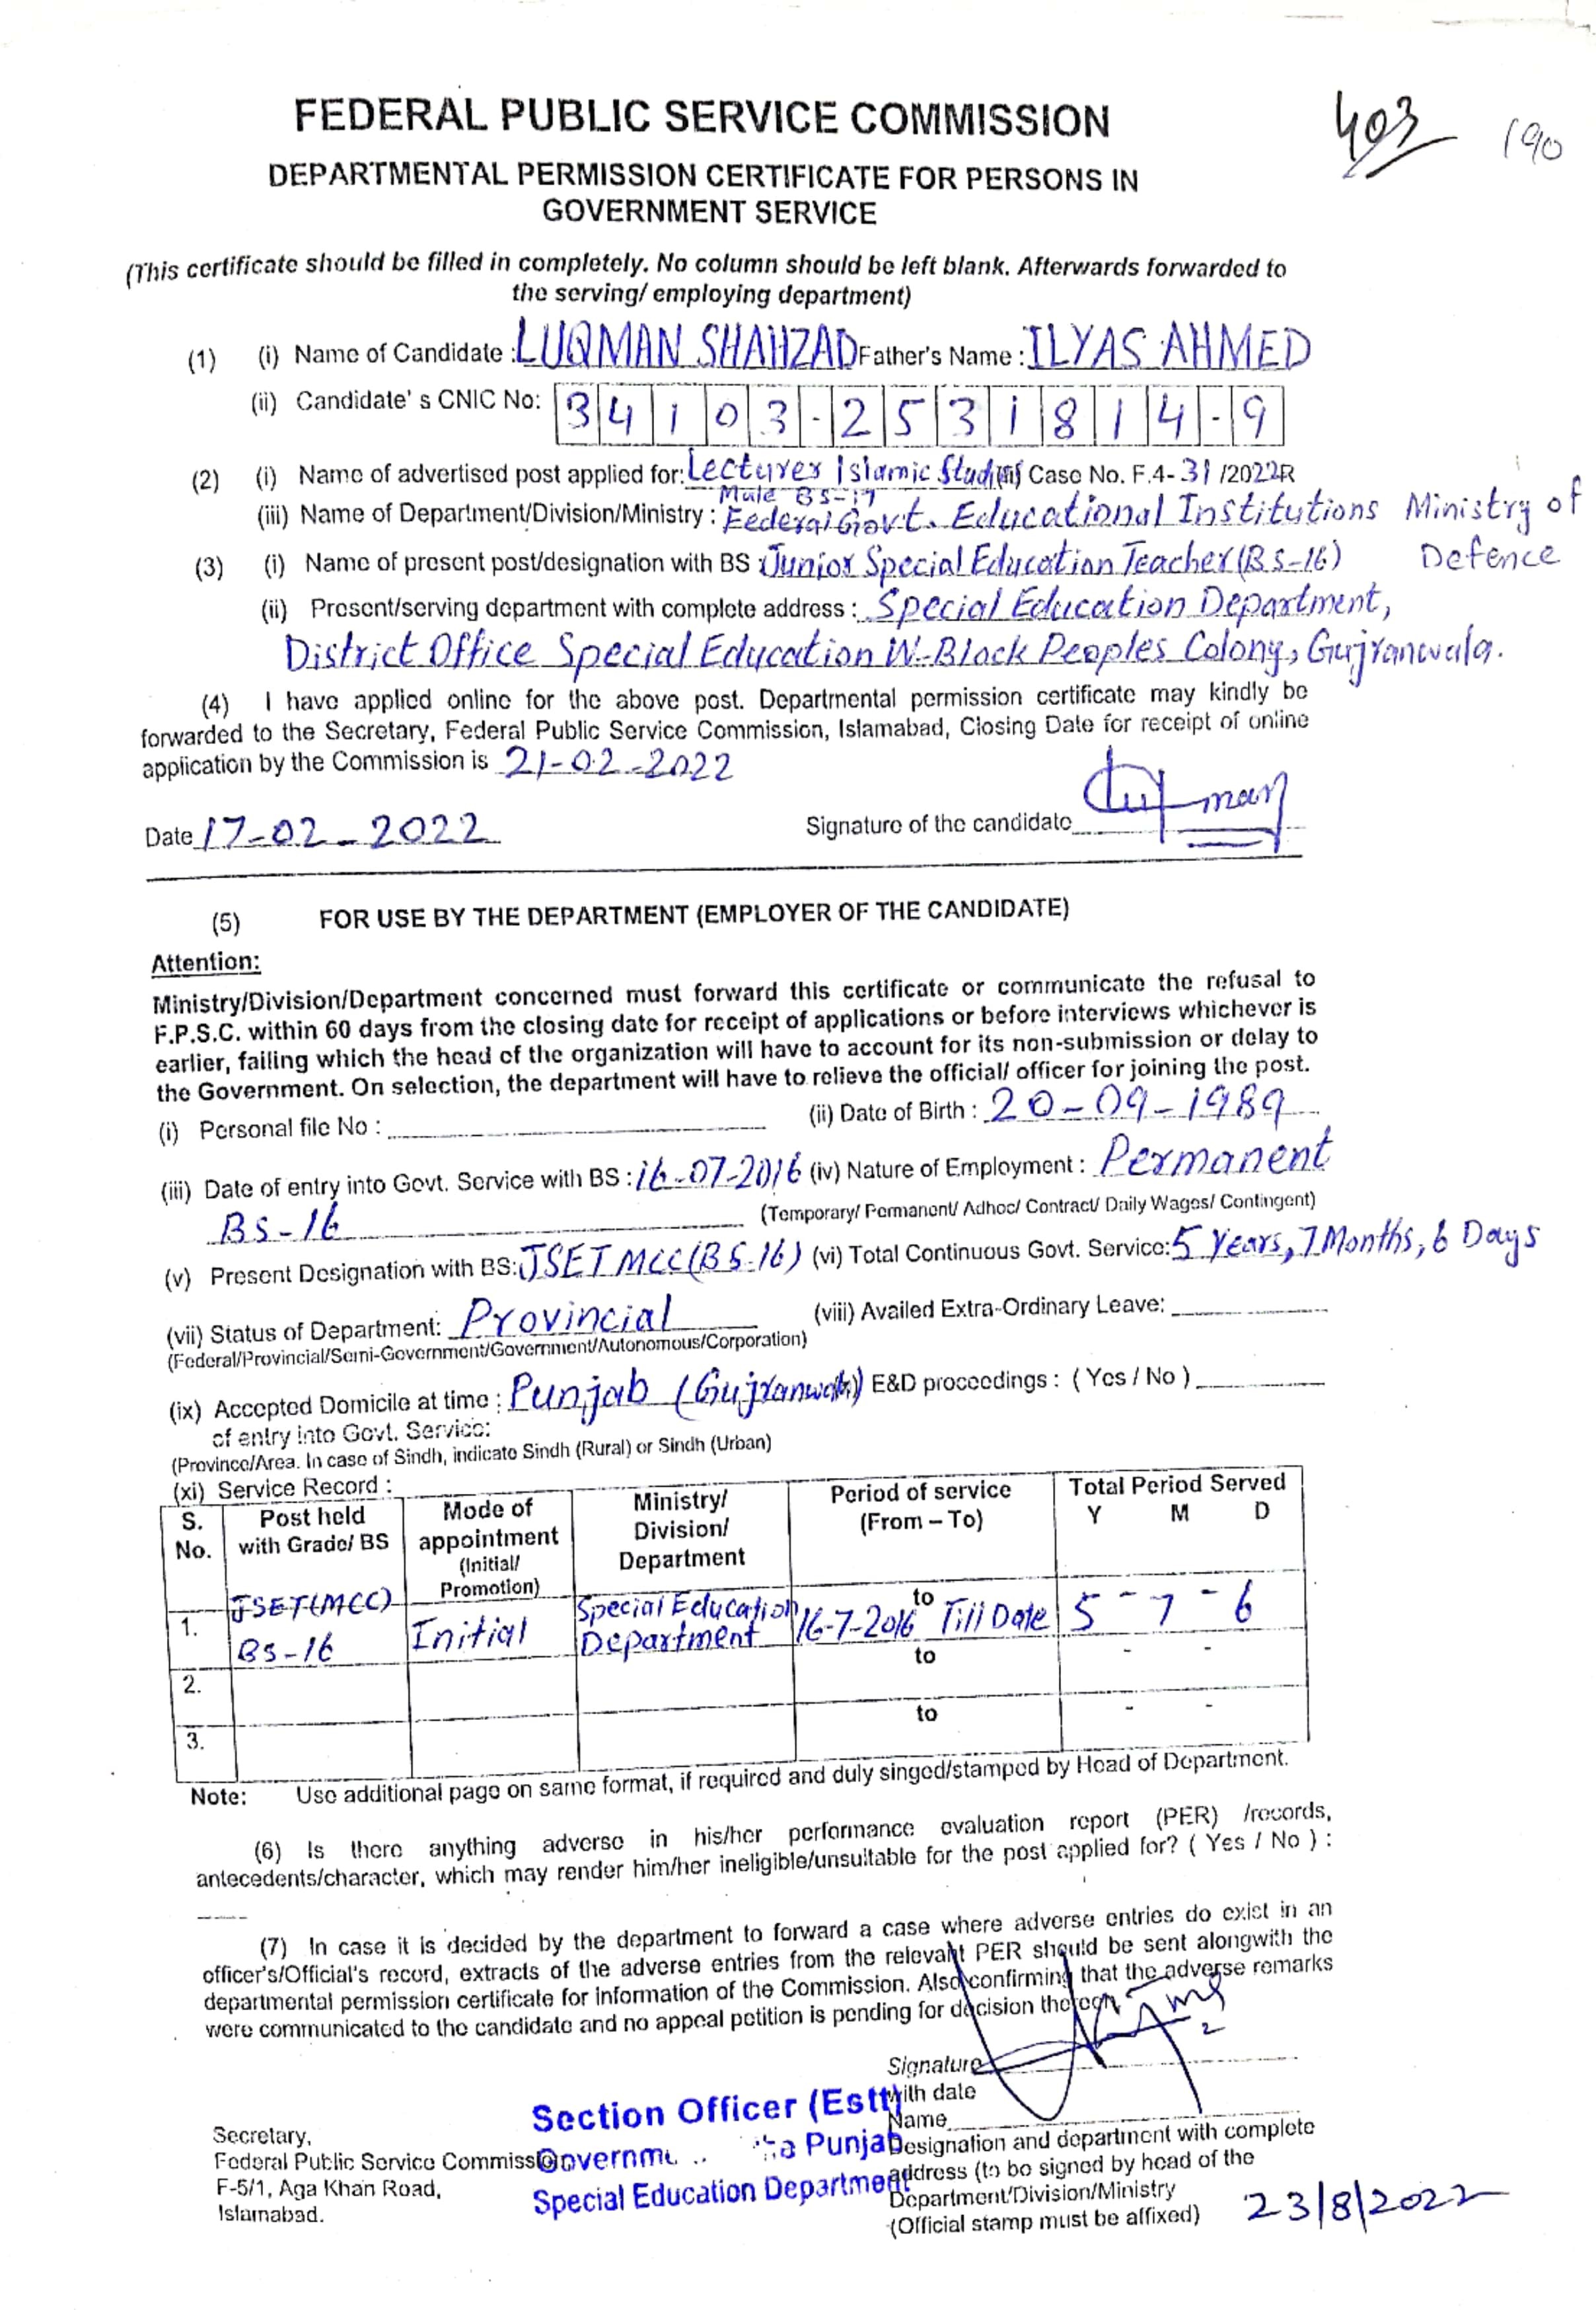 403
190
FEDERAL PUBLIC SERVICE COMMISSION
DEPARTMENTAL PERMISSION CERTIFICATE FOR PERSONS IN
GOVERNMENT SERVICE
(This certificate should be filled in completely. No column should be left blank. Afterwards forwarded to
the serving/ employing department)
(1) (i) Name of Candidate : LUQMAN SHAHZAD Father's Name : ILYAS AHMED
(ii) Candidate' s CNIC No: 34103-2531814-9
(2) (i) Name of advertised post applied for: Lecturer Islamic Studies Case No. F.4-31/2022R
Male BS-17
(iii) Name of Department/Division/Ministry : Federal Govt. Educational Institutions Ministry of
Defence
(3) (i) Name of present post/designation with BS : Junior Special Education Teacher (BS-16)
(ii) Present/serving department with complete address : Special Education Department,
District Office Special Education W-Block Peoples Colony, Gujranwala.
(4) I have applied online for the above post. Departmental permission certificate may kindly be
forwarded to the Secretary, Federal Public Service Commission, Islamabad, Closing Date for receipt of online
application by the Commission is 21-02-2022
Date 17-02-2022 Signature of the candidate Luqman
(5) FOR USE BY THE DEPARTMENT (EMPLOYER OF THE CANDIDATE)
Attention:
Ministry/Division/Department concerned must forward this certificate or communicate the refusal to
F.P.S.C. within 60 days from the closing date for receipt of applications or before interviews whichever is
earlier, failing which the head of the organization will have to account for its non-submission or delay to
the Government. On selection, the department will have to relieve the official/ officer for joining the post.
(i) Personal file No : (ii) Date of Birth : 20-09-1989
(iii) Date of entry into Govt. Service with BS : 16-07-2016 (iv) Nature of Employment : Permanent
BS-16 (Temporary/ Permanent/ Adhoc/ Contract/ Daily Wages/ Contingent)
(v) Present Designation with BS: JSET MCC (BS-16) (vi) Total Continuous Govt. Service: 5 Years, 7 Months, 6 Days
(vii) Status of Department: Provincial (viii) Availed Extra-Ordinary Leave:
(Federal/Provincial/Semi-Government/Government/Autonomous/Corporation)
(ix) Accepted Domicile at time : Punjab (Gujranwala) E&D proceedings : ( Yes / No )
of entry into Govt. Service:
(Province/Area. In case of Sindh, indicate Sindh (Rural) or Sindh (Urban)
(xi) Service Record :
S. No. Post held with Grade/ BS Mode of appointment (Initial/ Promotion) Ministry/ Division/ Department Period of service (From – To) Total Period Served Y M D
1. JSET (MCC) BS-16 Initial Special Education Department 16-7-2016 to Till Date 5 - 7 - 6
2. to - -
3. to - -
Note: Use additional page on same format, if required and duly singed/stamped by Head of Department.
(6) Is there anything adverse in his/her performance evaluation report (PER) /records,
antecedents/character, which may render him/her ineligible/unsuitable for the post applied for? ( Yes / No ) :
(7) In case it is decided by the department to forward a case where adverse entries do exist in an
officer's/Official's record, extracts of the adverse entries from the relevant PER should be sent alongwith the
departmental permission certificate for information of the Commission. Also confirming that the adverse remarks
were communicated to the candidate and no appeal petition is pending for decision thereon
Signature
with date
Name
Designation and department with complete
address (to be signed by head of the
Department/Division/Ministry
(Official stamp must be affixed)
23/8/2022
Section Officer (Estt)
Punjab
Special Education Department
Secretary,
Federal Public Service Commission
F-5/1, Aga Khan Road,
Islamabad.